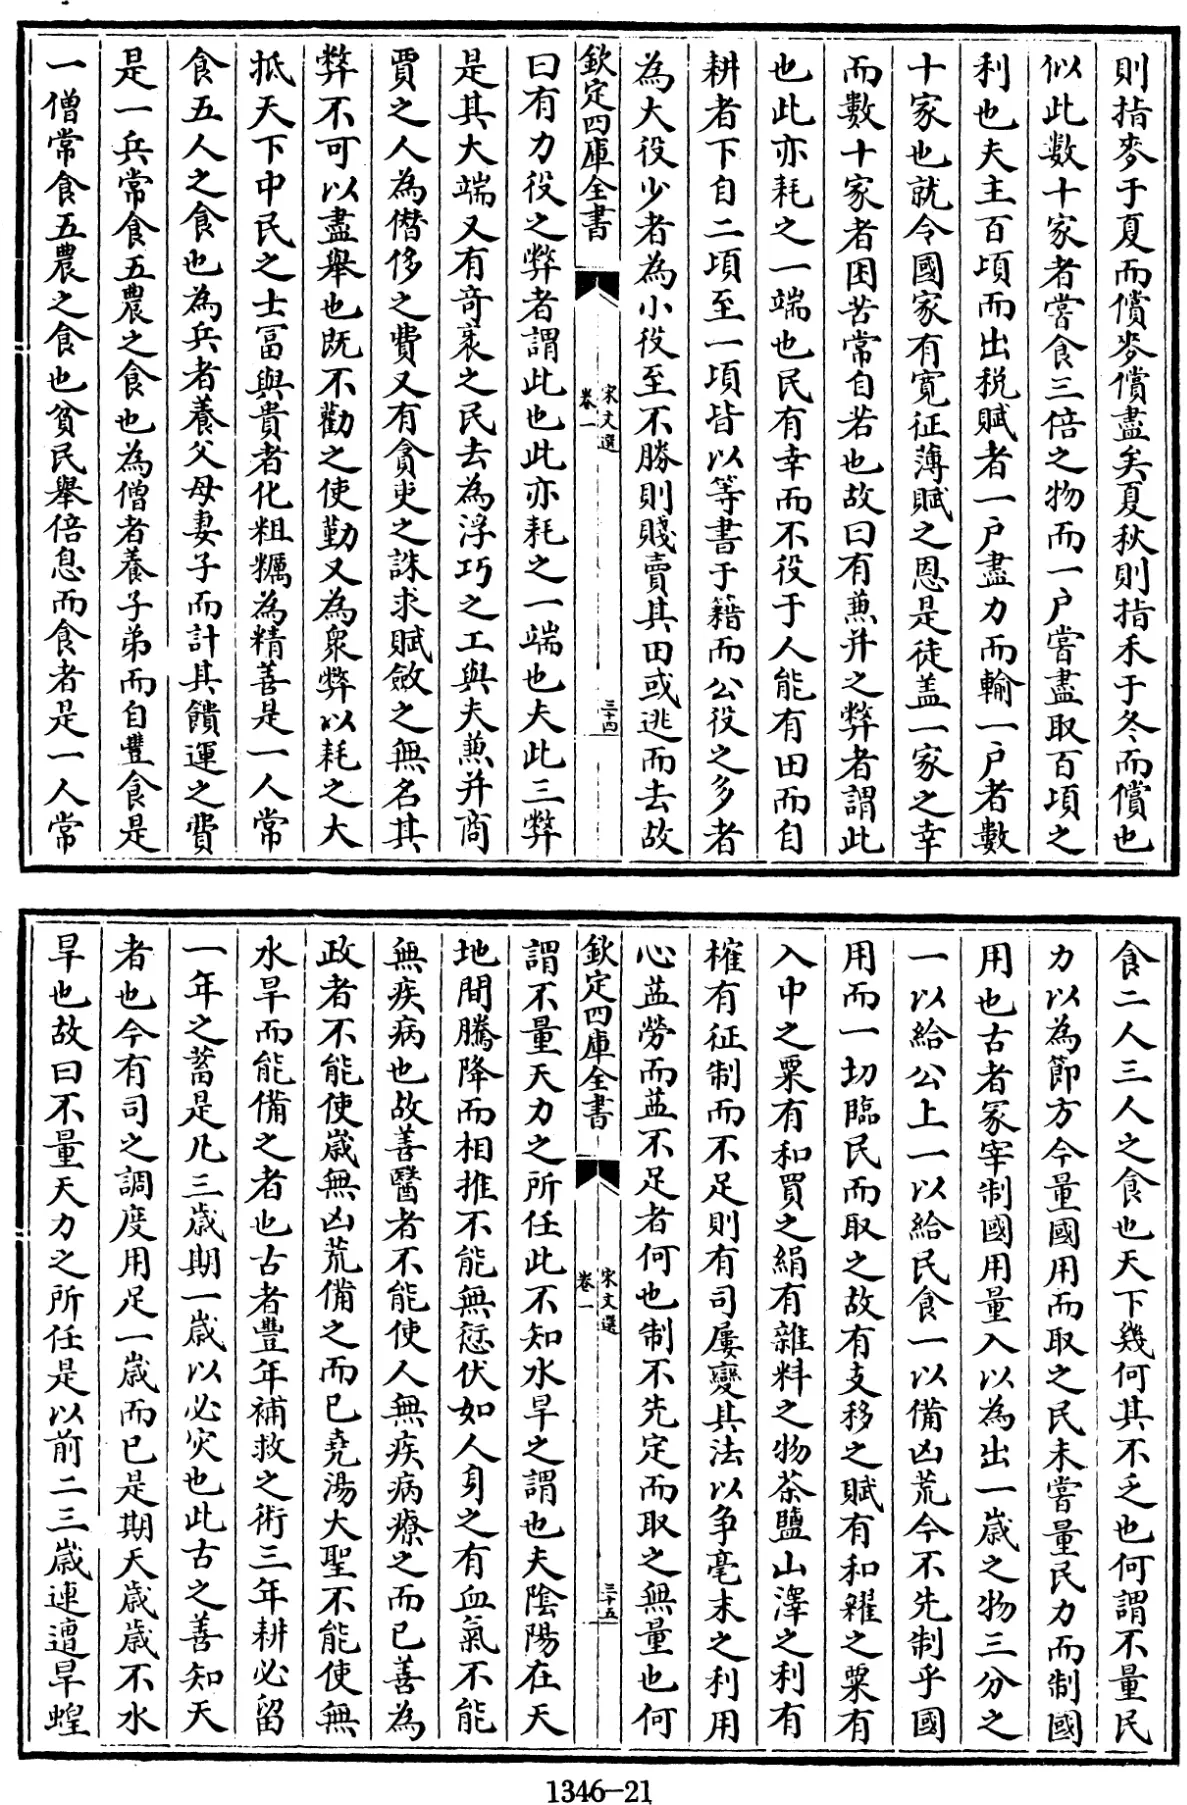 則指麥于夏而償麥償盡矣夏秋則指禾于冬而償也
似此數十家者嘗食三倍之物而一户嘗盡取百頃之
利也夫主百頃而出税賦者一户盡力而輸一户者數
十家也就令國家有寛征薄賦之恩是徒盖一家之幸
而數十家者困苦常自若也故曰有兼并之弊者謂此
也此亦耗之一端也民有幸而不役于人能有田而自
耕者下自二頃至一頃皆以等書于籍而公役之多者
為大役少者為小役至不勝則賤賣其田或逃而去故
欽定四庫全書
宋文選
卷一
三十四
曰有力役之弊者謂此也此亦耗之一端也夫此三弊
是其大端又有竒衺之民去為浮巧之工與夫兼并商
賈之人為僭侈之費又有貪吏之誅求賦斂之無名其
弊不可以盡舉也既不勸之使勤又為衆弊以耗之大
抵天下中民之士富與貴者化粗糲為精善是一人常
食五人之食也為兵者養父母妻子而計其饋運之費
是一兵常食五農之食也為僧者養子弟而自豐食是
一僧常食五農之食也貧民舉倍息而食者是一人常
食二人三人之食也天下幾何其不乏也何謂不量民
力以為節方今量國用而取之民未嘗量民力而制國
用也古者冢宰制國用量入以為出一嵗之物三分之
一以給公上一以給民食一以備凶荒今不先制乎國
用而一切臨民而取之故有支移之賦有和糴之粟有
入中之粟有和買之絹有雜料之物茶鹽山澤之利有
榷有征制而不足則有司屢變其法以争毫末之利用
心益勞而益不足者何也制不先定而取之無量也何
欽定四庫全書
宋文選
卷一
三十五
謂不量天力之所任此不知水旱之謂也夫陰陽在天
地間騰降而相推不能無愆伏如人身之有血氣不能
無疾病也故善醫者不能使人無疾病療之而已善為
政者不能使嵗無凶荒備之而已堯湯大聖不能使無
水旱而能備之者也古者豐年補救之術三年耕必留
一年之蓄是凡三嵗期一嵗以必灾也此古之善知天
者也今有司之調度用足一嵗而已是期天嵗嵗不水
旱也故曰不量天力之所任是以前二三嵗連遭旱蝗
1346-21